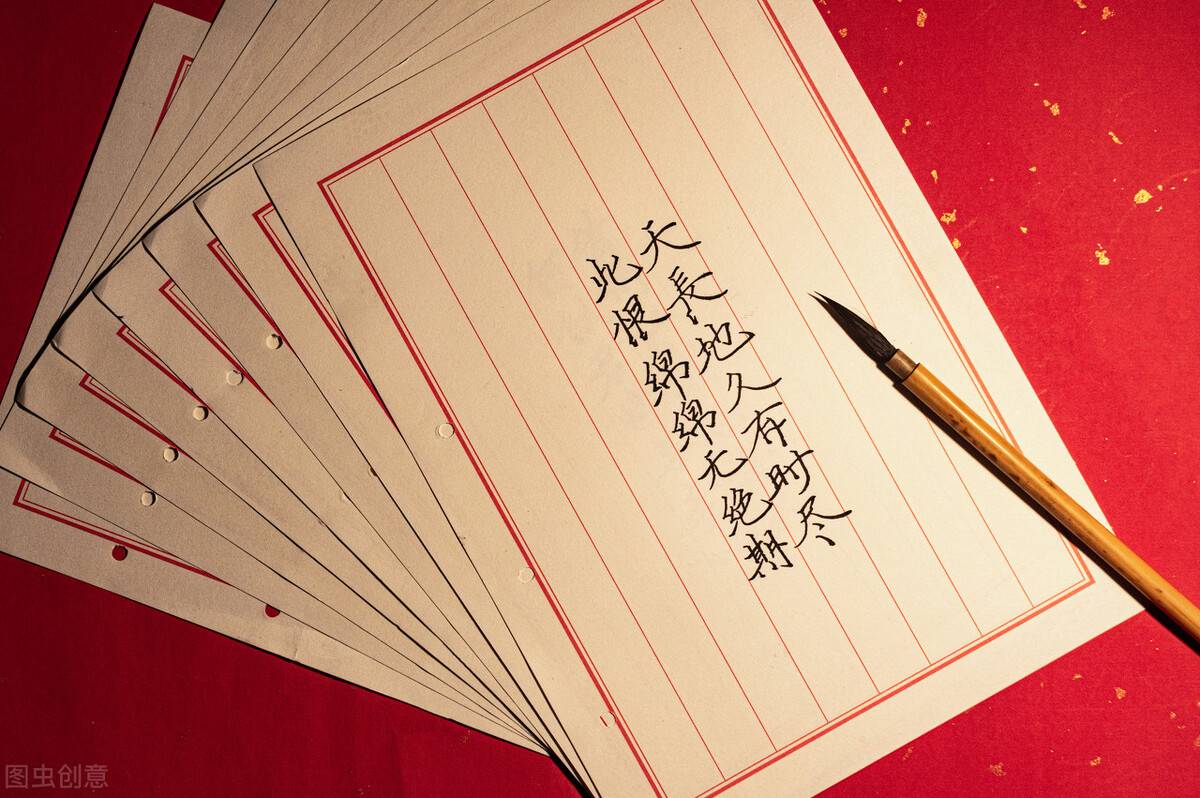 天長地久有时尽
此恨绵绵无绝期
图虫创意